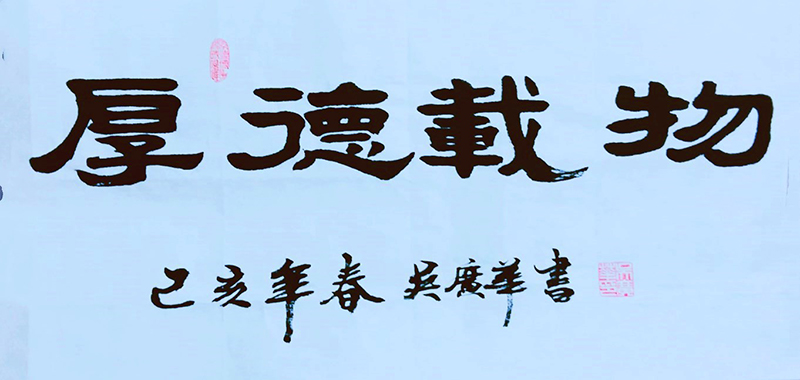 厚德載物
己亥年春 吴廣華書